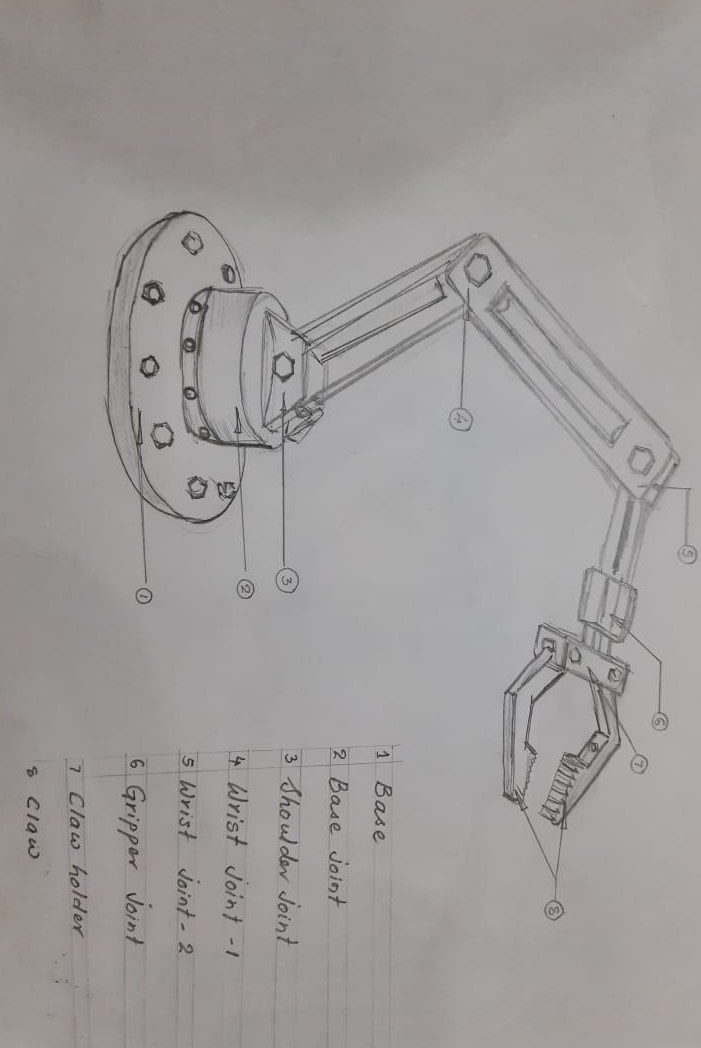 1
2
3
4
5
6
7
8
1 Base
2 Base joint
3 Shoulder joint
4 Wrist joint -1
5 Wrist joint - 2
6 Gripper joint
7 Claw holder
8 Claw